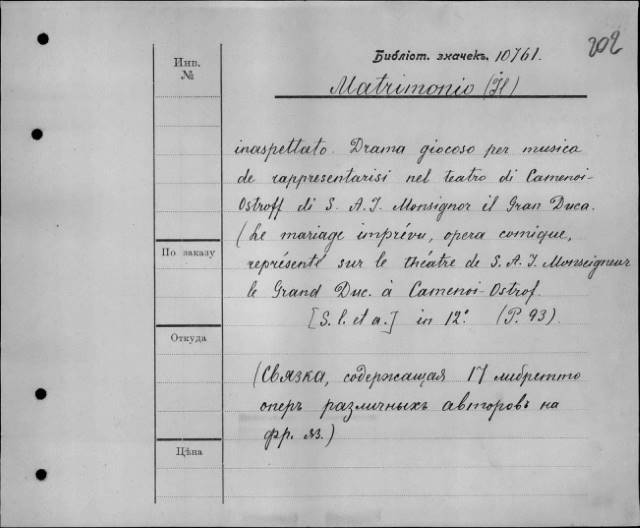 202
Библіот. значекъ. 10761.
Инв.
№
Matrimonio (Il)
inaspettato. Drama giocoso per musica
de rappresentarisi nel teatro di Camenoi-
Ostroff di S. A. I. Monsignor il Gran Duca.
(Le mariage imprévu, opera comique,
représenté sur le théatre de S. A. I. Monseigneur
le Grand Duc. à Camenoi-Ostrof.
[S. l. et a.] in 12º. (P. 93).
По заказу
Откуда
(Связка, содержащая 17 либретто
оперъ различныхъ авторовъ на
фр. яз.)
Цѣна